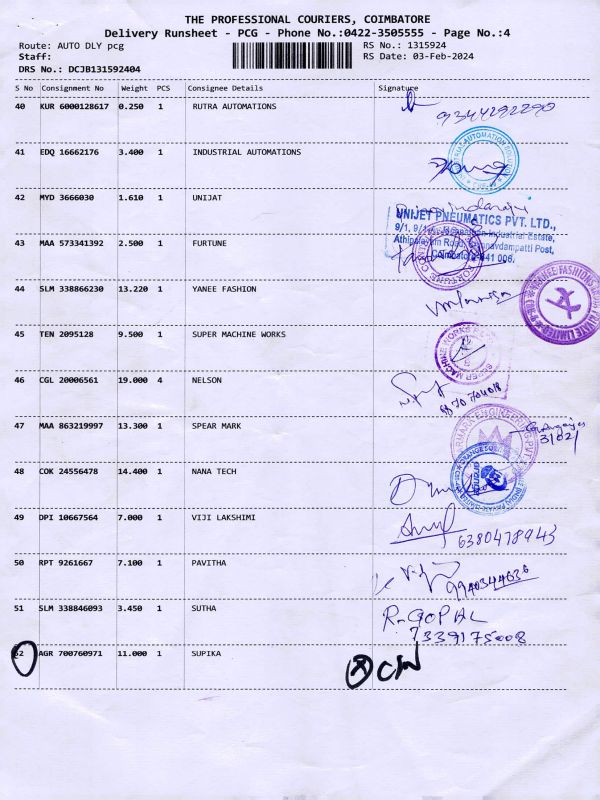 THE PROFESSIONAL COURIERS, COIMBATORE
Delivery Runsheet - PCG - Phone No.:0422-3505555 - Page No.:4
Route: AUTO DLY pcg RS No.: 1315924
Staff: RS Date: 03-Feb-2024
DRS No.: DCJB131592404
S No Consignment No Weight PCS Consignee Details Signature
40 KUR 6000128617 0.250 1 RUTRA AUTOMATIONS 9344292290
41 EDQ 16662176 3.400 1 INDUSTRIAL AUTOMATIONS
42 MYD 3666030 1.610 1 UNIJAT
UNIJET PNEUMATICS PVT. LTD.,
Industrial Estate,
43 MAA 573341392 2.500 1 FURTUNE
Athipalayam Road, Chinnavedampatti Post,
Coimbatore-641 006.
44 SLM 338866230 13.220 1 YANEE FASHION
45 TEN 2095128 9.500 1 SUPER MACHINE WORKS
46 CGL 20006561 19.000 4 NELSON
47 MAA 863219997 13.300 1 SPEAR MARK
48 COK 24556478 14.400 1 NANA TECH
49 DPI 10667564 7.000 1 VIJI LAKSHIMI
6380478943
50 RPT 9261667 7.100 1 PAVITHA
9940344636
51 SLM 338846093 3.450 1 SUTHA R-GOPAL
7339175008
52 AGR 700760971 11.000 1 SUPIKA